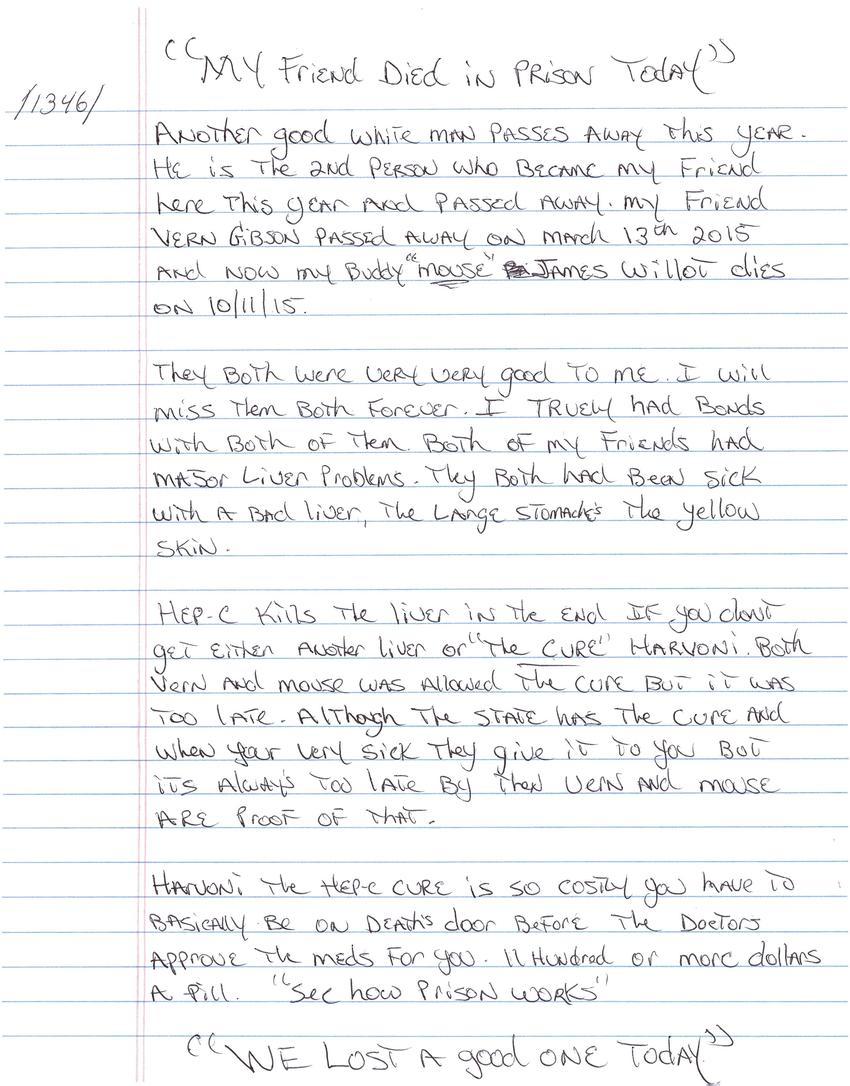 "My Friend Died in Prison Today"
/1346/
Another good white man passes away this year.
He is the 2nd person who became my friend
here this year and passed away. My friend
Vern Gibson passed away on March 13th 2015
and now my Buddy "mouse" James Willot dies
on 10/11/15.
They both were very very good to me. I will
miss them both forever. I truely had bonds
with both of them. Both of my friends had
major liver problems. They both had been sick
with a bad liver, the large stomache's the yellow
skin.
Hep-C kills the liver in the end if you don't
get either another liver or "the CURE" Harvoni. Both
Vern and mouse was allowed the cure but it was
too late. Although the state has the cure and
when your very sick they give it to you but
its always's too late by then Vern and mouse
are proof of that.
Harvoni the Hep-C cure is so costly you have to
basically be on death's door before the doctors
approve the meds for you. 11 Hundred or more dollars
a pill. "See how Prison works"
"We lost a good one today"